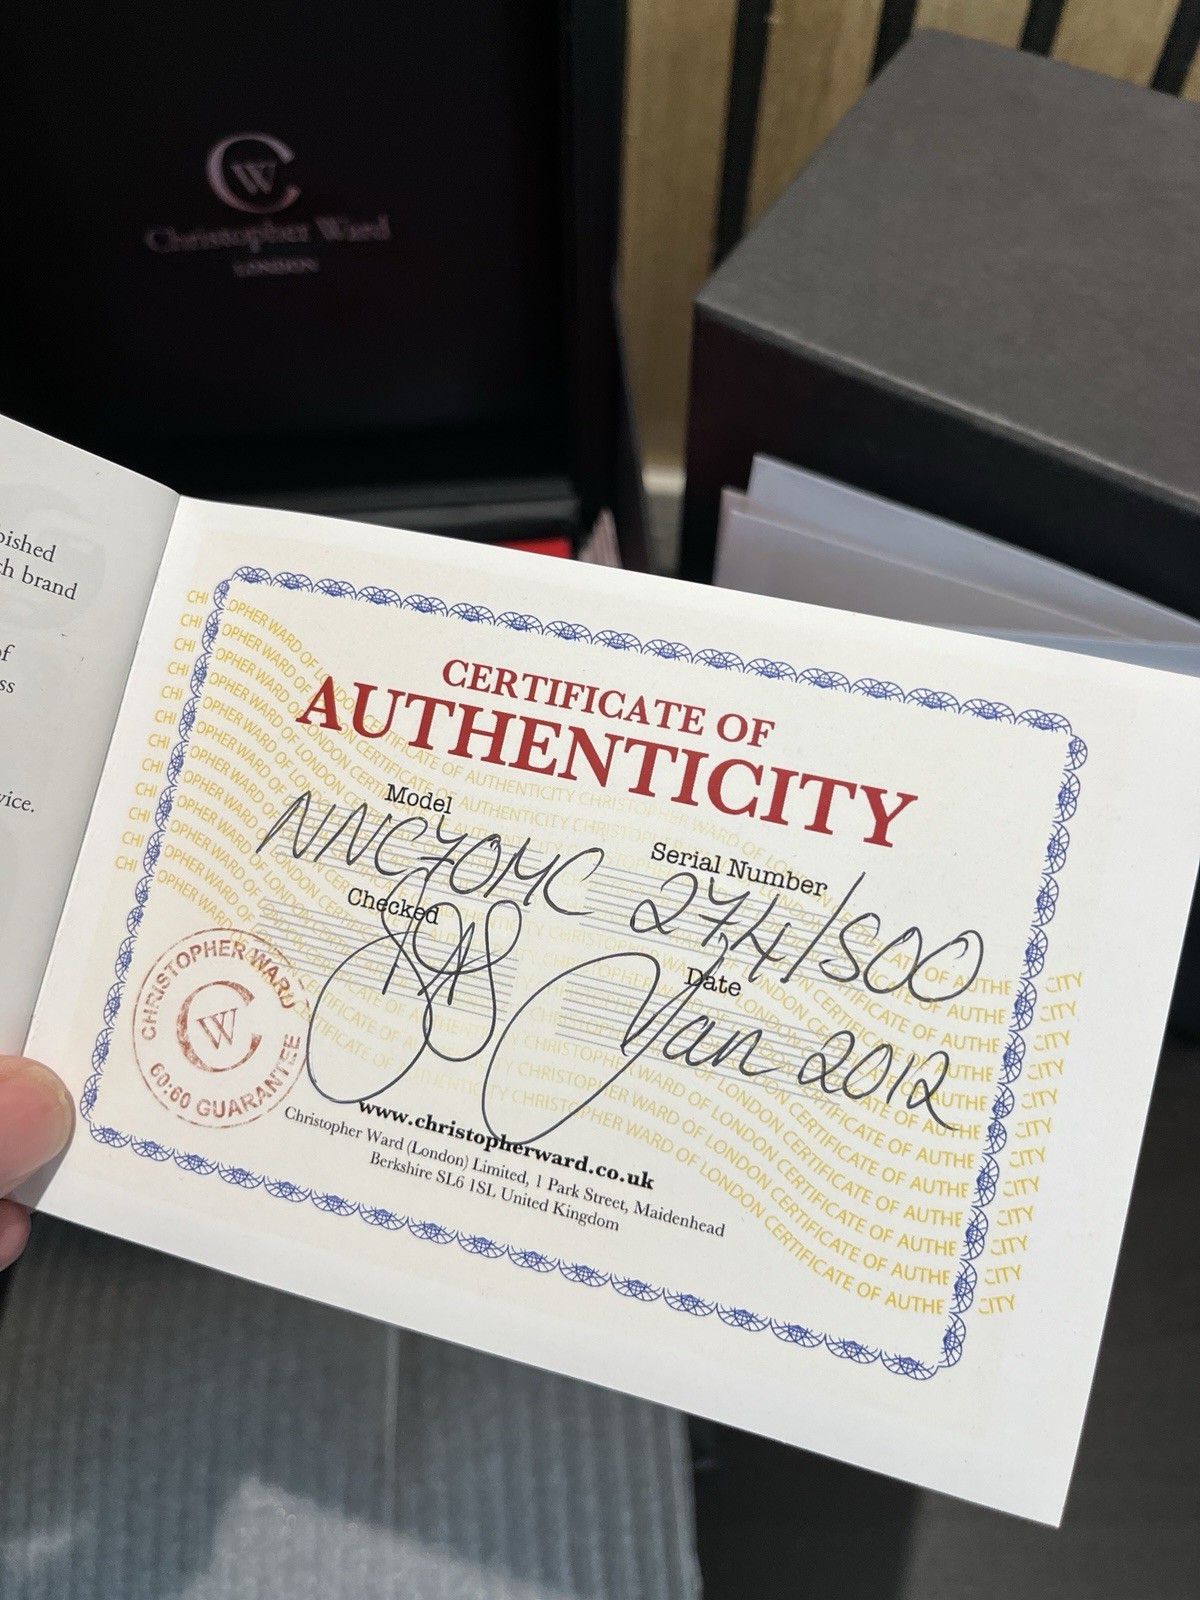 CW
Christopher Ward
LONDON
bished
th brand
of
ss
vice.
CERTIFICATE OF
AUTHENTICITY
Model
NNC70MC
Serial Number
274/500
Checked
Date
Jan 2012
CHRISTOPHER WARD
CW
60:60 GUARANTEE
www.christopherward.co.uk
Christopher Ward (London) Limited, 1 Park Street, Maidenhead
Berkshire SL6 1SL United Kingdom